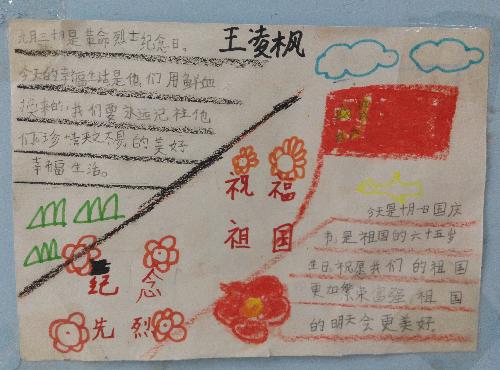 王凌枫
九月三十日是革命烈士纪念日。
今天的幸福生活是他们用鲜血
换来的,我们要永远记住他
们,珍惜来之不易的美好
幸福生活。
纪念
先烈
祝福
祖国
今天是十月一日国庆
节,是祖国的六十五岁
生日,祝愿我们的祖国
更加繁荣富强,祖国
的明天会更美好。